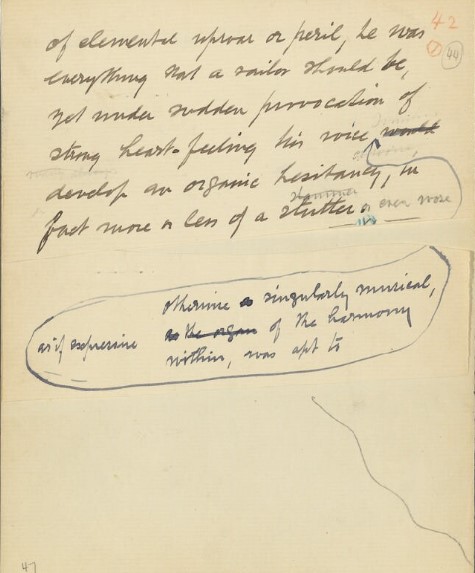 42
7 44
of elemental uproar or peril, he was
everything that a sailor should be,
yet under sudden provocation of
strong heart-feeling his voice would
develop an organic hesitancy, in
stammer
fact more or less of a stutter or even worse
otherwise so singularly musical,
as if expressive as the organ of the harmony
within, was apt to
47